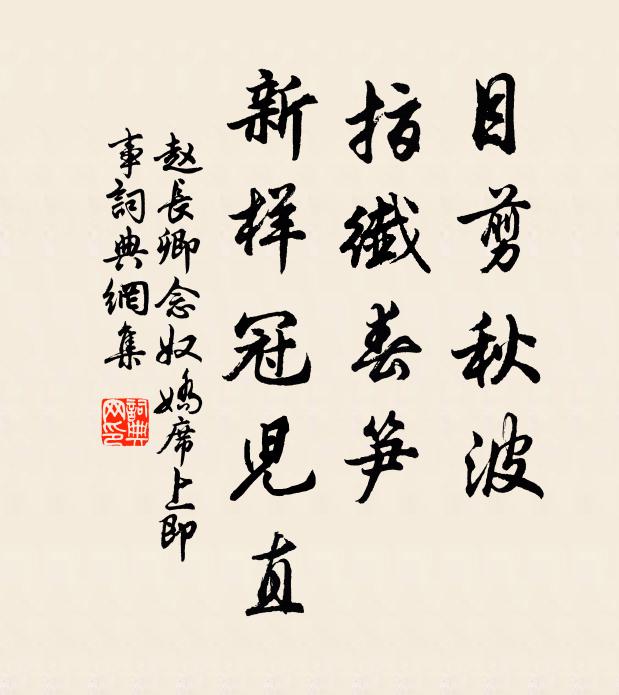 目剪秋波
指纖春笋
新样冠兒直
赵長卿念奴嬌席上即
事詞典網集
詞典
网印